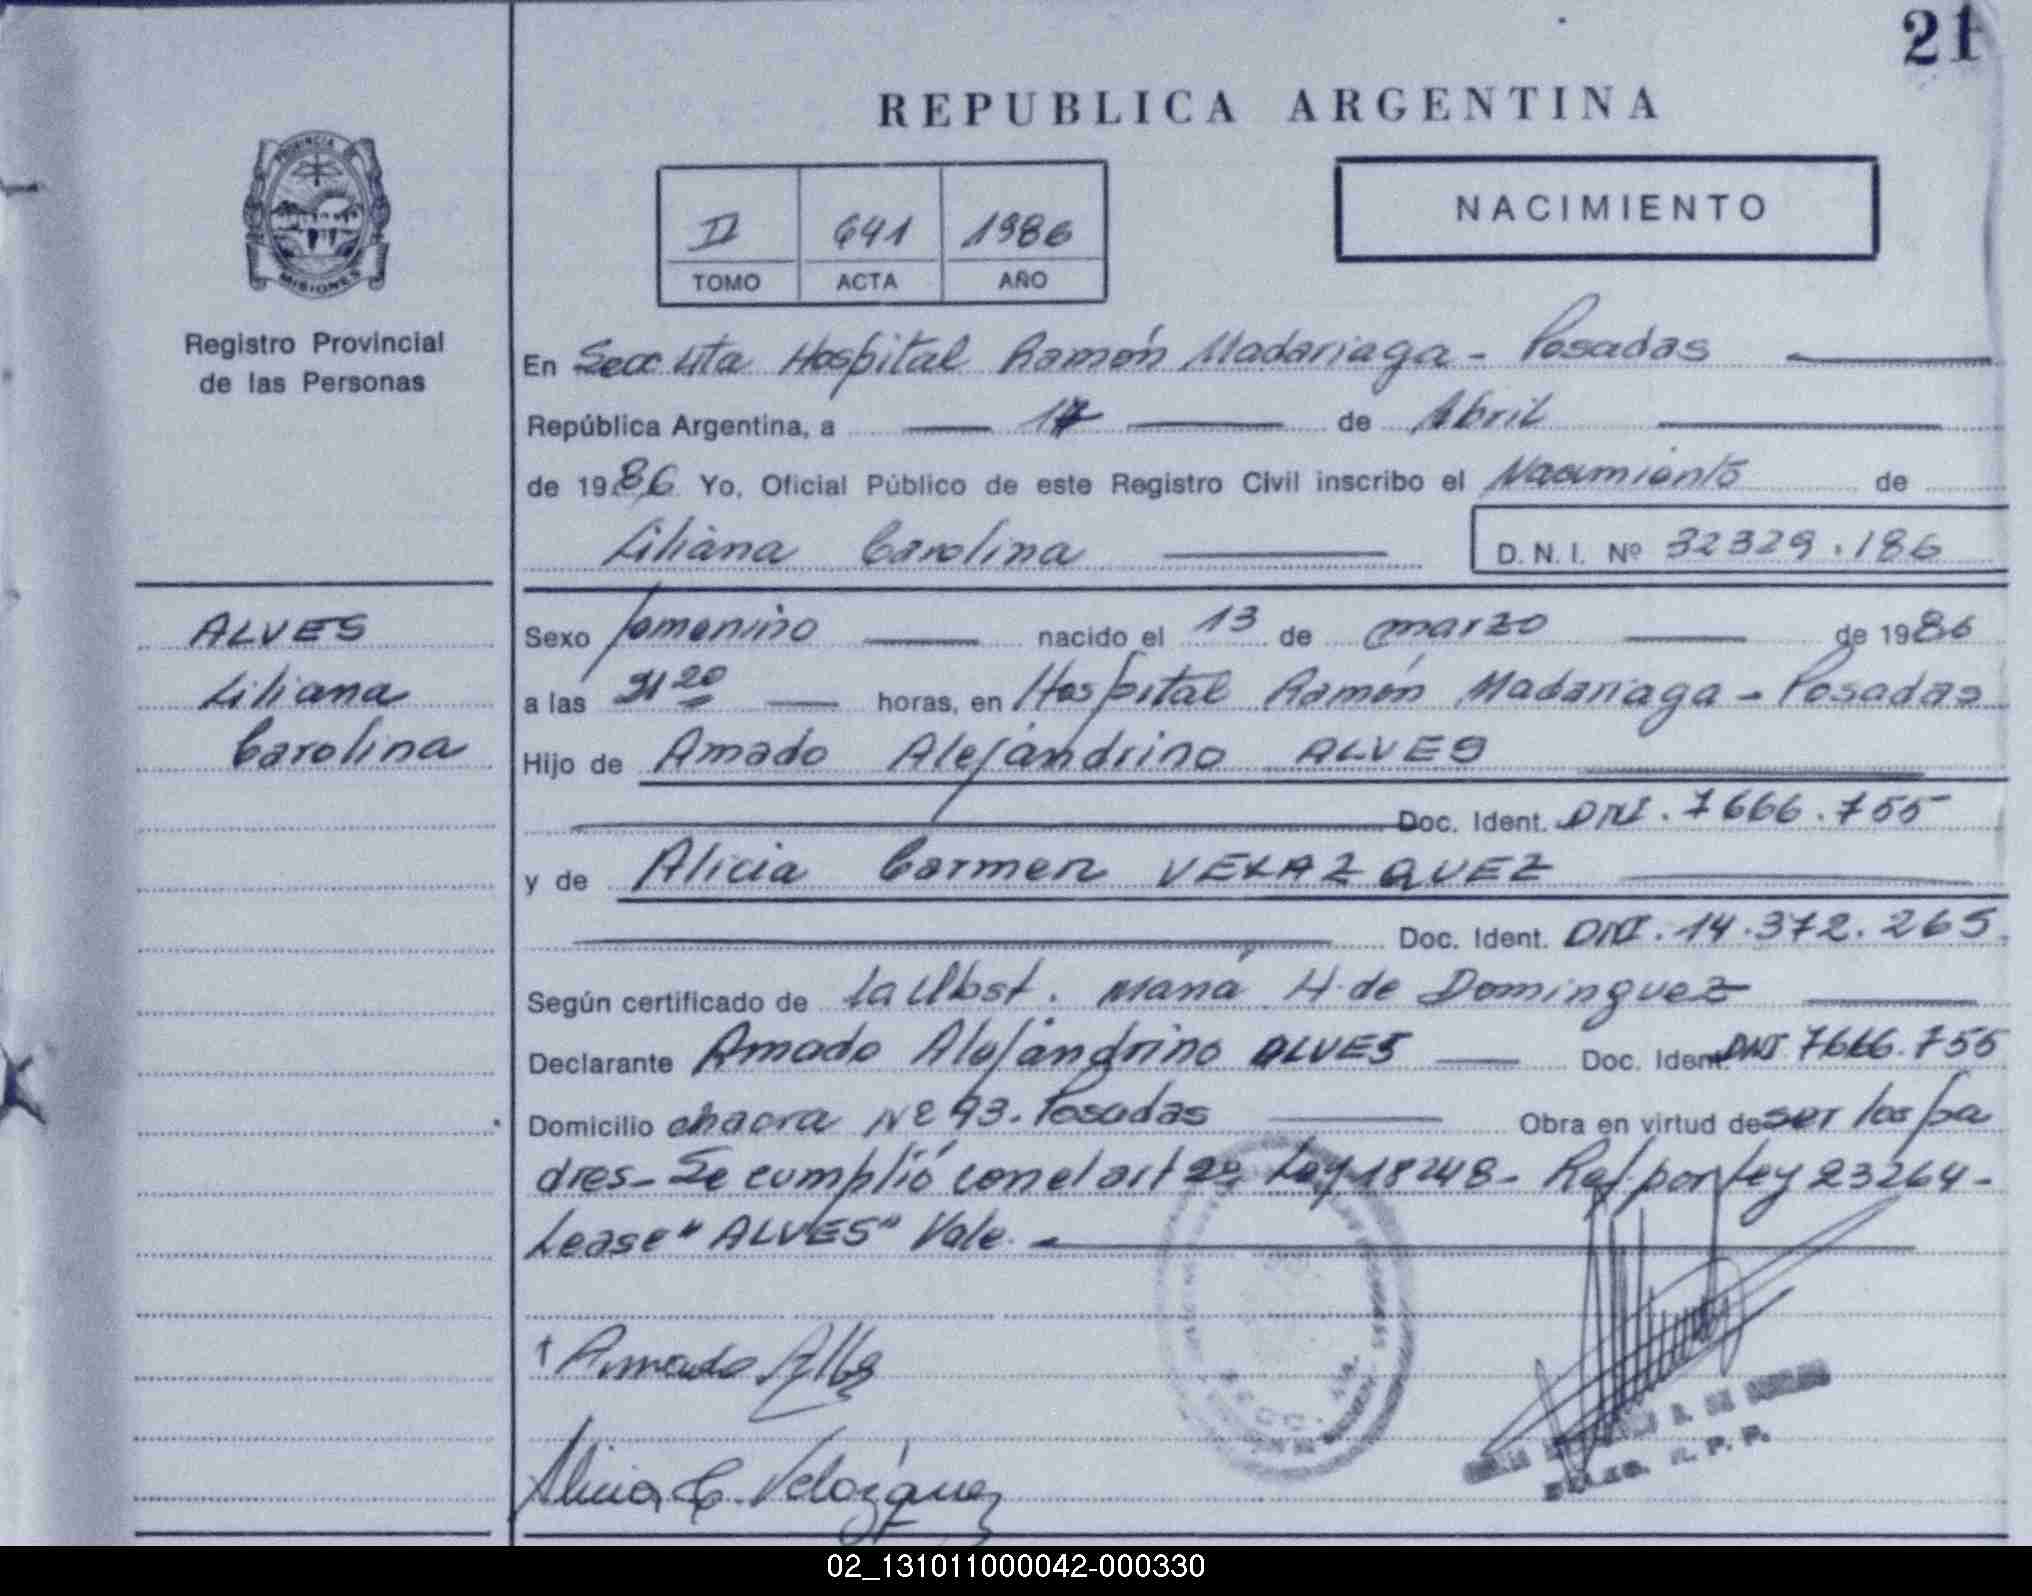 21
REPUBLICA ARGENTINA
PROVINCIA DE
MISIONES
Registro Provincial
de las Personas
II 641 1986
TOMO ACTA AÑO
NACIMIENTO
En Secc 4ta Hospital Ramón Madariaga - Posadas
República Argentina, a 17 de Abril
de 1986 Yo, Oficial Público de este Registro Civil inscribo el Nacimiento de
Liliana Carolina D.N.I. Nº 32329.186
ALVES
Liliana
Carolina
Sexo femenino nacido el 13 de marzo de 1986
a las 21 20 horas, en Hospital Ramón Madariaga - Posadas
Hijo de Amado Alejandrino ALVES
Doc. Ident. DNI. 7666.755
y de Alicia Carmen VELAZQUEZ
Doc. Ident. DNI. 14.372.265
Según certificado de la Obst. María H. de Dominguez
Declarante Amado Alejandrino ALVES Doc. Ident. DNI 7666.755
Domicilio chacra Nº 93. Posadas Obra en virtud de ser los pa
dres - Se cumplió con el art 2º Ley 18248 - Ref por Ley 23264 -
Lease "ALVES" Vale.
Amado
Alicia C. Velázquez
SECC. 4ta.
R. P. P.
02_131011000042-000330